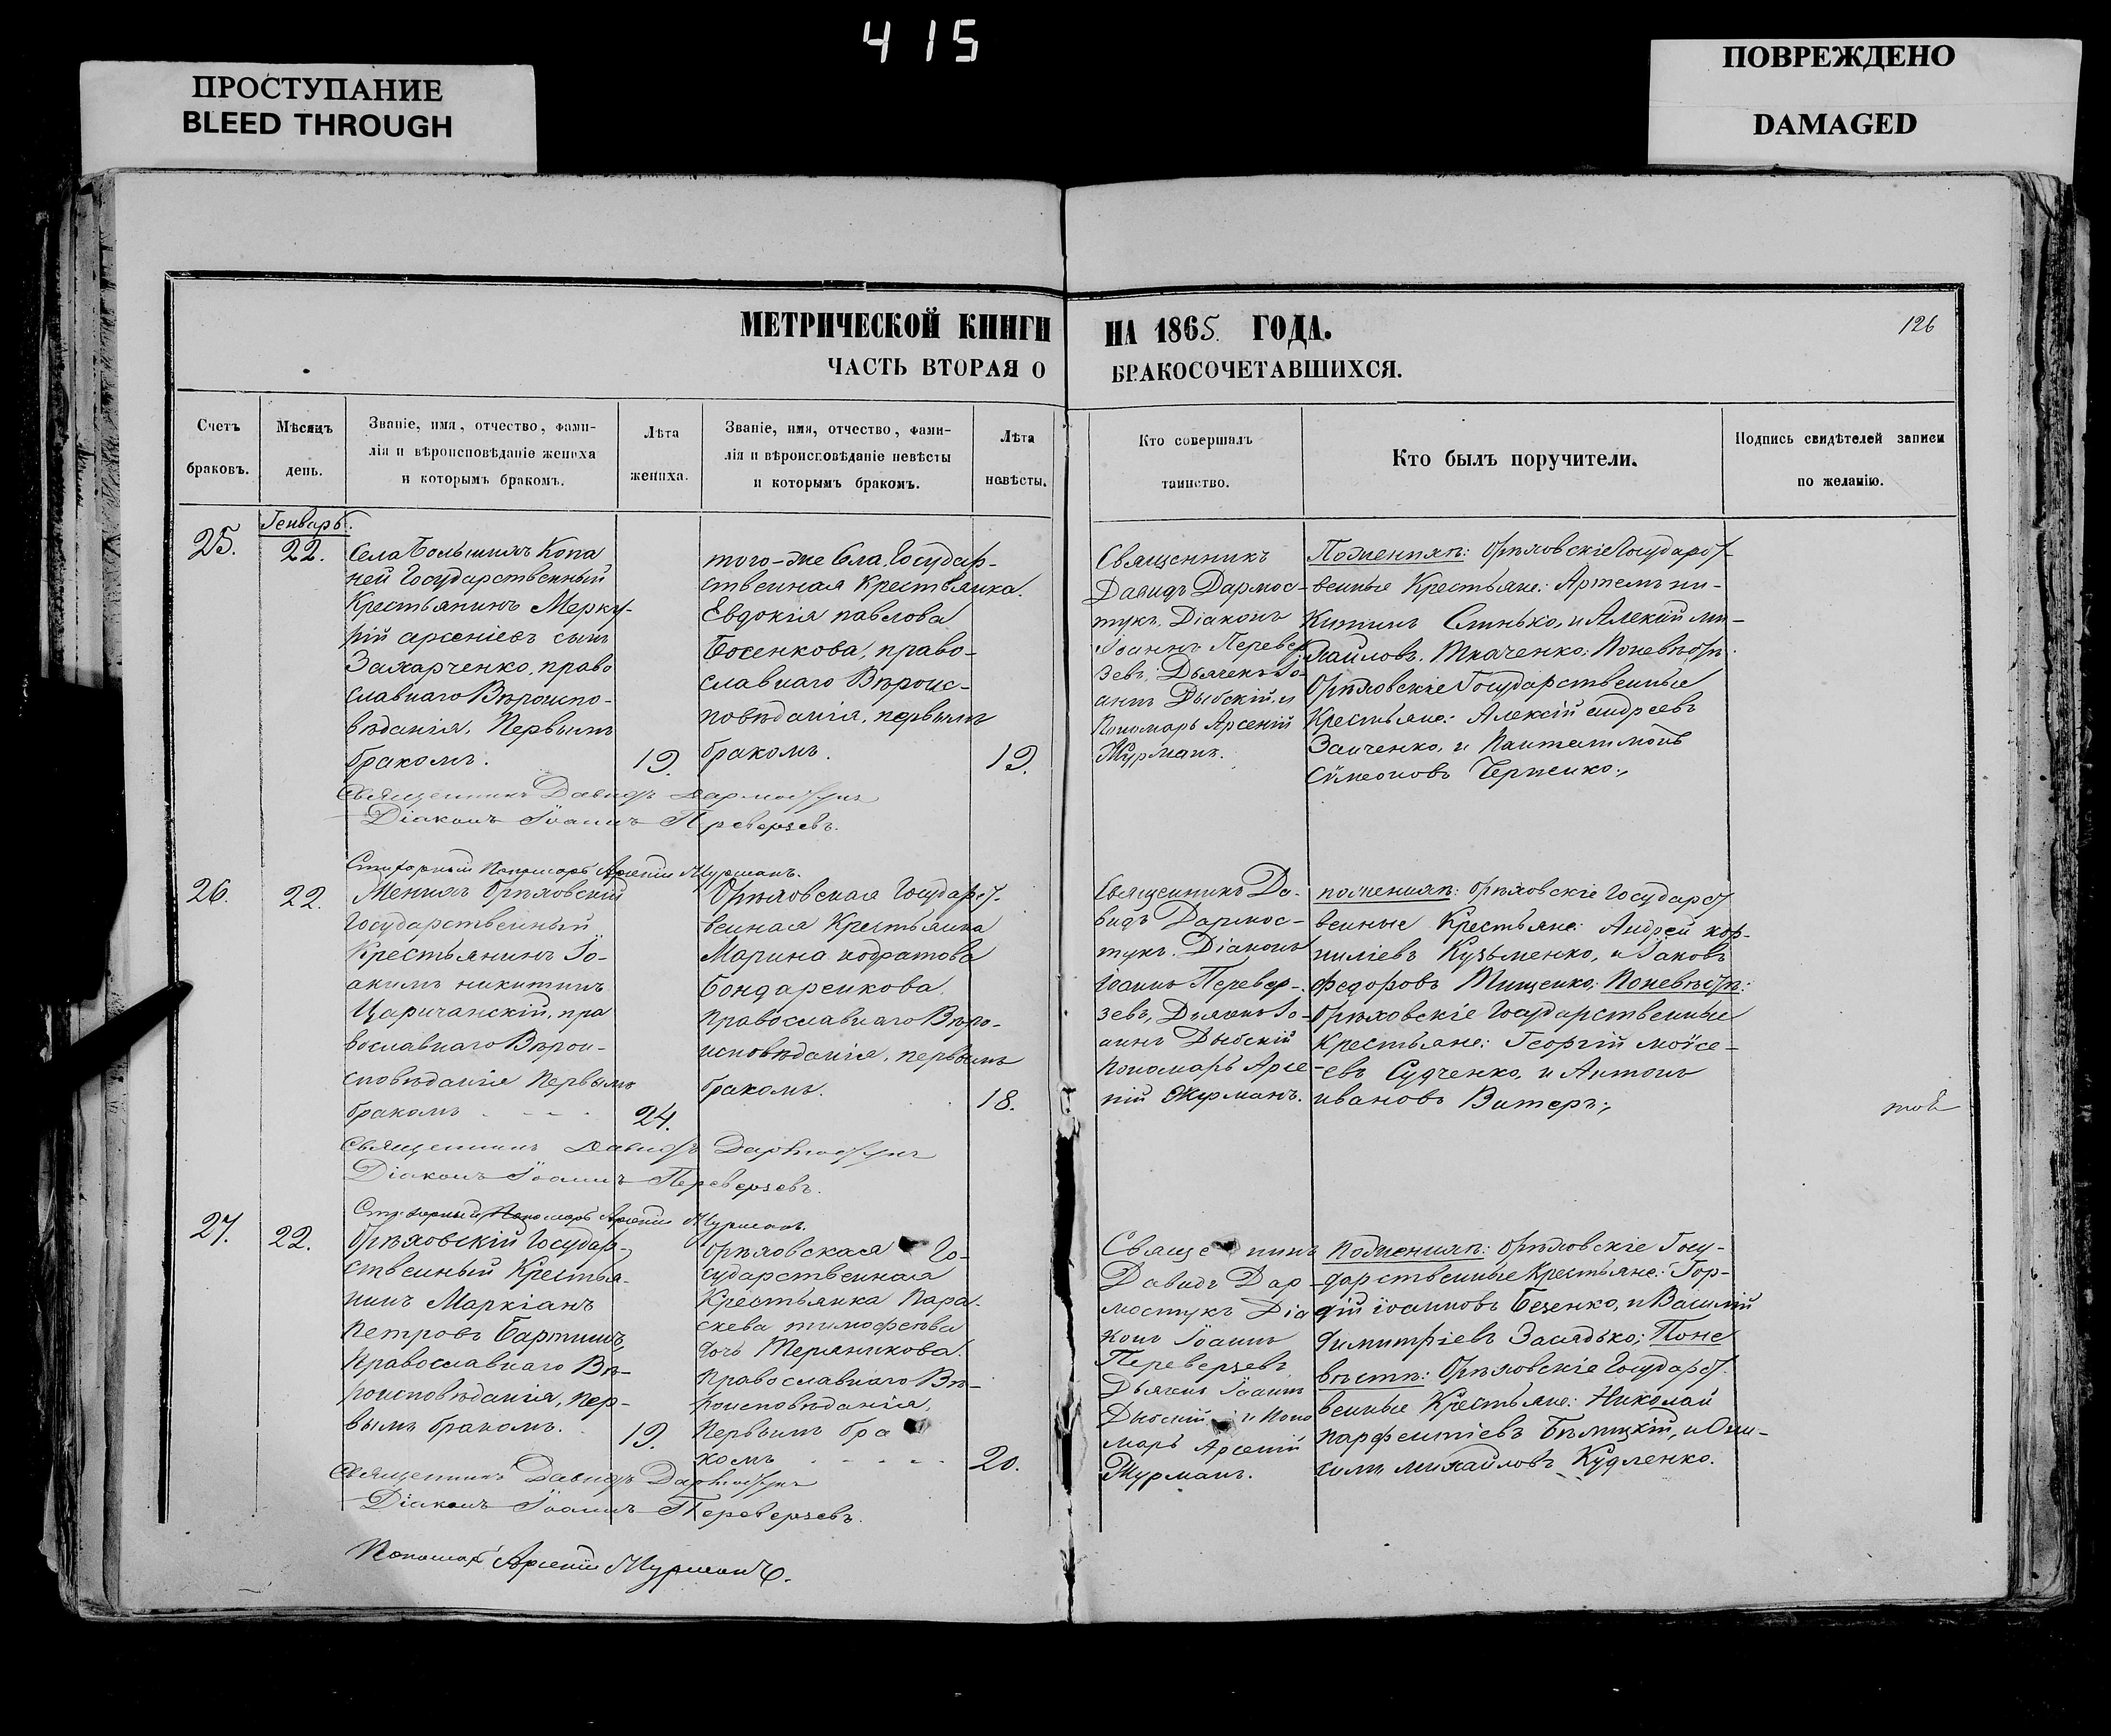 415
ПРОСТУПАНИЕ
BLEED THROUGH
ПОВРЕЖДЕНО
DAMAGED
МЕТРИЧЕСКОЙ КНИГИ НА 1865. ГОДА.
126
ЧАСТЬ ВТОРАЯ О БРАКОСОЧЕТАВШИХСЯ.
Счетъ
браковъ.
Мѣсяцъ
день.
Званіе, имя, отчество, фами-
лія и вѣроисповѣданіе жениха
и которымъ бракомъ.
Лѣта
жениха.
Званіе, имя, отчество, фами-
лія и вѣроисповѣданіе невѣсты
и которымъ бракомъ.
Лѣта
невѣсты.
Кто совершалъ
таинство.
Кто былъ поручители.
Подпись свидѣтелей записи
по желанію.
25.
Генварь.
22.
Села Большихъ Копа
ней Государственный
Крестьянинъ Мерку-
рій арсеніевъ сынъ
Захарченко, право
славнаго Вѣроиспо-
вѣданія, Первымъ
бракомъ.
19.
того-же Села, Государ-
ственная Крестьянка.
Евдокія павлова
Босенкова, право-
славнаго Вѣроис-
повѣданія, первымъ
бракомъ.
19.
Священникъ
Давидъ Дармос-
тукъ, Діаконъ
Іоаннъ Перевер-
зевъ, Дьячекъ Іо-
аннъ Дыбскій, и
Пономарь Арсеній
Журманъ.
Поженихѣ: Орѣховскіе Государст-
венные Крестьяне: Артемъ ни-
китинъ Слинько, и Алексій ми-
хайловъ Ткаченко; Поневѣстѣ:
Орѣховскіе Государственные
Крестьяне: Алексій андреевъ
Заиченко, и Пантелимонъ
Сѵмеоновъ Черненко;
Священникъ Давидъ Дармостукъ
Діаконъ Іоаннъ Переверзевъ.
Пономарь Арсеній Журманъ.
26.
22.
Женихъ Орѣховскій
Государственный
Крестьянинъ Іо-
акимъ никитинъ
Царичанскій, пра
вославнаго Вѣрои-
сповѣданія Первымъ
бракомъ
24.
Орѣховская Государст-
венная Крестьянка
Марина кодратова
Бондаренкова,
Православнаго Вѣро-
исповѣданія, первымъ
бракомъ.
18.
Священникъ Да-
видъ Дармос-
тукъ. Діаконъ
Іоаннъ Перевер-
зевъ, Дьячекъ Іо-
аннъ Дыбскій
Пономарь Арсе-
ній Журманъ.
поженихѣ: Орѣховскіе Государст-
венные Крестьяне: Андрей кор-
ниліевъ Кузьменко, и Іаковъ
федоровъ Тищенко; Поневѣстѣ:
Орѣховскіе Государственные
Крестьяне: Георгій моѵсе-
евъ Судченко, и Антонъ
ивановъ Витеръ;
Священникъ Давидъ Дармостукъ
Діаконъ Іоаннъ Переверзевъ.
Пономарь Арсеній Журманъ.
27.
22.
Орѣховскій Государ-
ственный Крестья-
нинъ Маркіанъ
Петровъ Бартишъ,
Православнаго Вѣ-
роисповѣданія, пер-
вымъ бракомъ.
19.
Орѣховская Го-
сударственная
Крестьянка Пара-
скева тимофеева
дочь Теряникова.
Православнаго Вѣ-
роисповѣданія,
Первымъ бра
комъ
20.
Священникъ
Давидъ Дар-
мостукъ Діа
конъ Іоаннъ
Переверзевъ
Дьячекъ Іоаннъ
Дыбскій и Поно
марь Арсеній
Журманъ.
Поженихѣ: Орѣховскіе Госу-
дарственные Крестьяне: Гор-
дій іоанновъ Безенко, и Василій
димитріевъ Засядько; Поне
вѣстѣ: Орѣховскіе Государст-
венные Крестьяне: Николай
парфентіевъ Бѣлицкій, и Они-
симъ михайловъ Кудленко.
Священникъ Давидъ Дармостукъ
Діаконъ Іоаннъ Переверзевъ.
Пономарь Арсеній Журманъ.